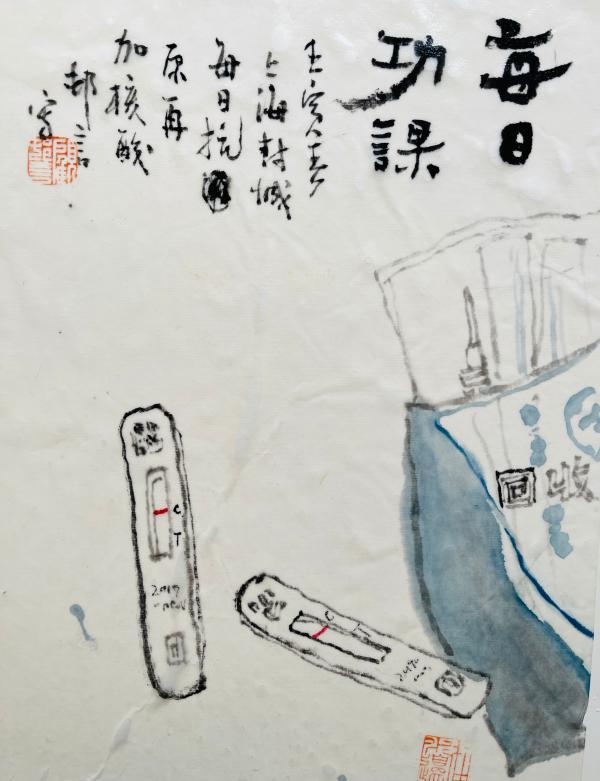 每日
功課
壬寅春
上海封城
每日抗
原再
加核酸
邨言
寫
回收
C
T
2019
-nCoV
回
C
T
2019
回